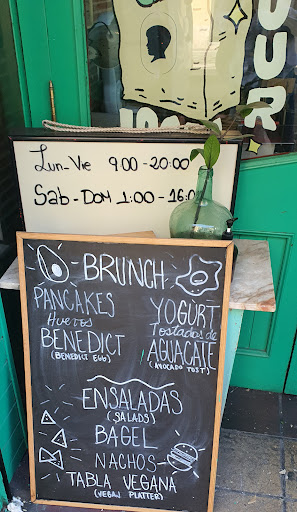 Lun-Vie 9:00-20:00
Sab-Dom 1:00-16:0
BRUNCH
PANCAKES
Huevos
BENEDICT
(BENEDICT EGG)
YOGURT
Tostadas de
AGUACATE
(AVOCADO TOST)
ENSALADAS
(SALADS)
BAGEL
NACHOS
TABLA VEGANA
(VEGAN PLATTER)